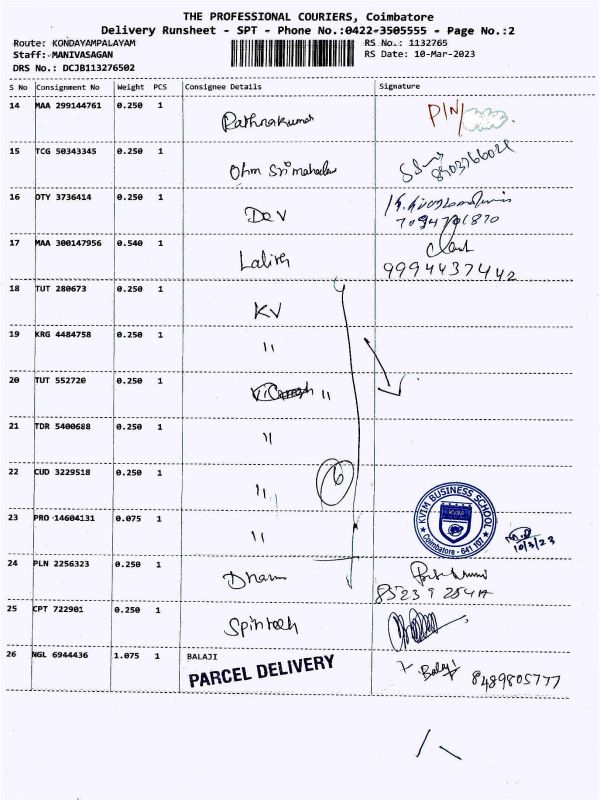 THE PROFESSIONAL COURIERS, Coimbatore
Delivery Runsheet - SPT - Phone No.:0422-3505555 - Page No.:2
Route: KONDAYAMPALAYAM
Staff: MANIVASAGAN
DRS No.: DCJB113276502
RS No.: 1132765
RS Date: 10-Mar-2023
S No Consignment No Weight PCS Consignee Details Signature
14 MAA 299144761 0.250 1 Pathrakumar PIN/
15 TCG 50343345 0.250 1 Ohm Sri mahadev
16 DTY 3736414 0.250 1 Dev
17 MAA 300147956 0.540 1 Lalith
9994437442
18 TUT 280673 0.250 1 KV
19 KRG 4484758 0.250 1 "
20 TUT 552720 0.250 1 "
21 TDR 5400688 0.250 1 "
22 CUD 3229518 0.250 1 "
6
23 PRO 14604131 0.075 1 "
KVIM BUSINESS SCHOOL
KVIM
Coimbatore - 641 107
10/3/23
24 PLN 2256323 0.250 1 Dharun
25 CPT 722901 0.250 1 Spintech
26 NGL 6944436 1.075 1 BALAJI
PARCEL DELIVERY
Balaji 8489805777